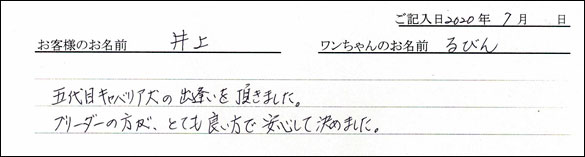 ご記入日2020年 7月 日
お客様のお名前 井上 ワンちゃんのお名前 るびん
五代目キャベリア犬の出逢いを頂きました。
ブリーダーの方が、とても良い方で安心して決めました。